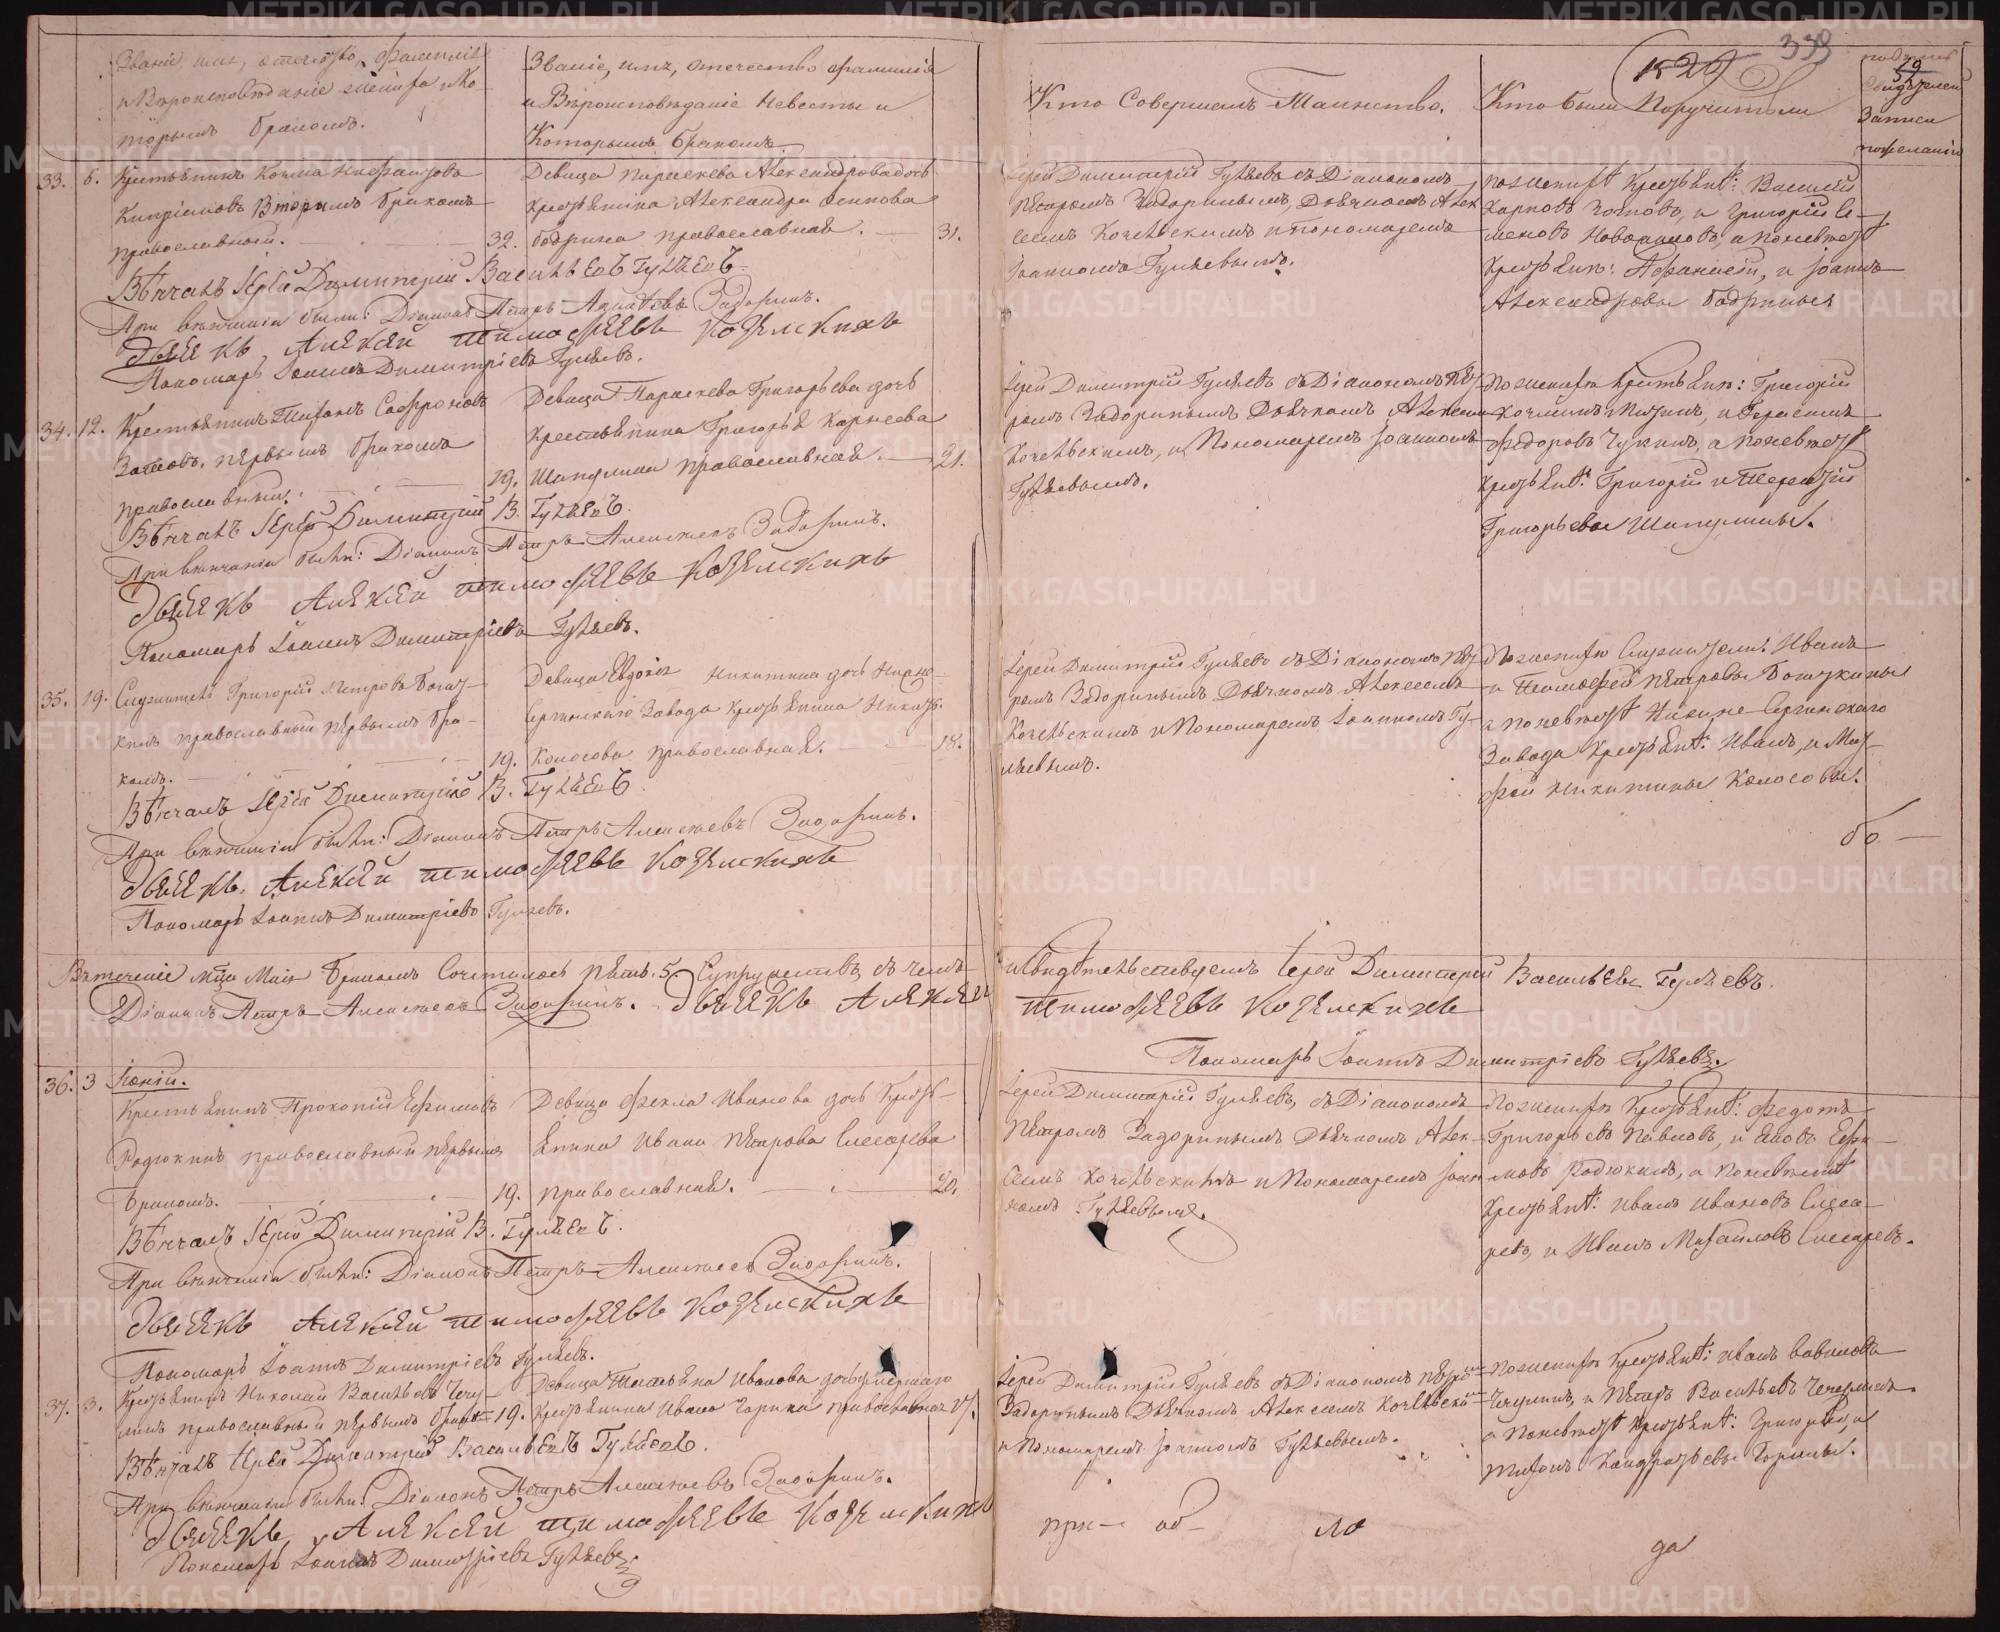 Званіе, имя, отечество, фамилія
и Вѣроисповѣданіе жениха и Ко-
торымъ бракомъ.
Званіе, имя, отечество фамилія
и Вѣроисповѣданіе Невесты и
Которымъ бракомъ.
Кто Совершалъ Таинство.
Кто были Поручители
339
Записи
33. 6. Крестьянинъ Козма
Кипріановъ Вторымъ бракомъ
православный. 32.
Девица Параскева Александрова дочь
крестьянина Александра Осипова
бодрина православная. 31.
Іерей Димитрій Гуляевъ съ Діакономъ
Петромъ Задоринымъ, Дьячкомъ Алек
сеемъ и Пономаремъ
Іоанномъ Гуляевымъ.
по женихѣ Крестьян: Василий
Карповъ и Григорій Се-
меновъ а по невѣстѣ
Крестьян: Афанасій, и Іоаннъ
Александровы бодрины
Вѣнчалъ Іерей Димитрій Васильевъ Гуляевъ
При вѣнчаніи были: Діаконъ Петръ Алексѣевъ Задоринъ.
Дьячекъ Алексей Тимофеевъ Козелскихъ
Пономарь Іоаннъ Димитріевъ Гуляевъ.
34. 12. Крестьянинъ Тихонъ Софроновъ
первымъ бракомъ
православный. 19.
Девица Параскева Григорьева дочь
крестьянина Григорья Карнеева
Шапулина православная. 21.
Іерей Димитрій Гуляевъ съ Діакономъ Пет-
ромъ Задоринымъ Дьячкомъ Алексеем
и Пономаремъ Іоанномъ
Гуляевымъ.
По женихѣ Крестьян: Григорій
и Герасимъ
Федоровъ а по невѣстѣ
Крестьян: Григорій и Терентій
Григорьевы Шапулины.
Вѣнчалъ Іерей Димитрій В. Гуляевъ
При вѣнчаніи были: Діаконъ Петръ Алексѣевъ Задоринъ.
Дьячекъ Алексей Тимофеевъ Козелскихъ
Пономарь Іоаннъ Димитріевъ Гуляевъ.
35. 19. Служитель Григорій Петровъ
православный первымъ бра-
комъ. 19.
Девица Евдокія Никитина дочь Нижне-
Сергинскаго Завода Крестьянина Никиты
Колосова православная. 18.
Іерей Димитрій Гуляевъ съ Діакономъ Пет-
ромъ Задоринымъ Дьячкомъ Алексеемъ
и Пономаремъ Іоанномъ Гу-
ляевымъ.
По женихѣ Служители: Иванъ
и Тимофей Петровы
а по невѣстѣ Нижне-Сергинскаго
Завода Крестьян: Иванъ, и
Никитины Колосовы.
Вѣнчалъ Іерей Димитрій В. Гуляевъ
При вѣнчаніи были: Діаконъ Петръ Алексѣевъ Задоринъ.
Дьячекъ Алексей Тимофеевъ Козелскихъ
Пономарь Іоаннъ Димитріевъ Гуляевъ.
Въ теченіе м-ца Маія бракомъ Сочеталось пять 5 Супружествъ, въ чемъ
и свидѣтельствуемъ Іерей Димитрій Васильевъ Гуляевъ.
Діаконъ Петръ Алексѣевъ Задоринъ. Дьячекъ Алексей
Тимофеевъ Козелскихъ
Пономарь Іоаннъ Димитріевъ Гуляевъ.
Іюній.
36. 3 Крестьянинъ Прокопій Ефимовъ
Родюкинъ православный первымъ
бракомъ. 19.
Девица Фекла Иванова дочь Кресть-
янина Ивана Петрова Слесарева
православная. 20.
Іерей Димитрій Гуляевъ, съ Діакономъ
Петромъ Задоринымъ Дьячкомъ Алек-
сеемъ и Пономаремъ Іоан
номъ Гуляевымъ.
По женихѣ Крестьян: Федотъ
Григорьевъ Павловъ, и Ефи-
мовъ Родюкинъ, а по невѣстѣ
Крестьян: Иванъ Ивановъ Слеса-
ревъ, и Иванъ Михайловъ Слесаревъ.
Вѣнчалъ Іерей Димитрій В. Гуляевъ.
При вѣнчаніи были: Діаконъ Петръ Алексѣевъ Задоринъ.
Дьячекъ Алексей Тимофеевъ Козелскихъ
Пономарь Іоаннъ Димитріевъ Гуляевъ.
37. 3. Крестьянинъ Николай Васильевъ Чечу-
линъ православный первымъ бракомъ 19.
Девица Татьяна Иванова дочь умершаго
Крестьянина Ивана православная 17.
Іерей Димитрій Гуляевъ съ Діакономъ Петромъ
Задоринымъ Дьячкомъ Алексеемъ
и Пономаремъ Іоанномъ Гуляевымъ.
По женихѣ Крестьян: Иванъ Вавиловъ
Чечулинъ, и Петръ Васильевъ Чечулинъ
а по невѣстѣ Крестьян: Григорій, и
Тихонъ Кондратьевы
Вѣнчалъ Іерей Димитрій Васильевъ Гуляевъ.
При вѣнчаніи были: Діаконъ Петръ Алексѣевъ Задоринъ.
Дьячекъ, Алексей Тимофеевъ Козелскихъ
Пономарь Іоаннъ Димитріевъ Гуляевъ
METRIKI.GASO-URAL.RU